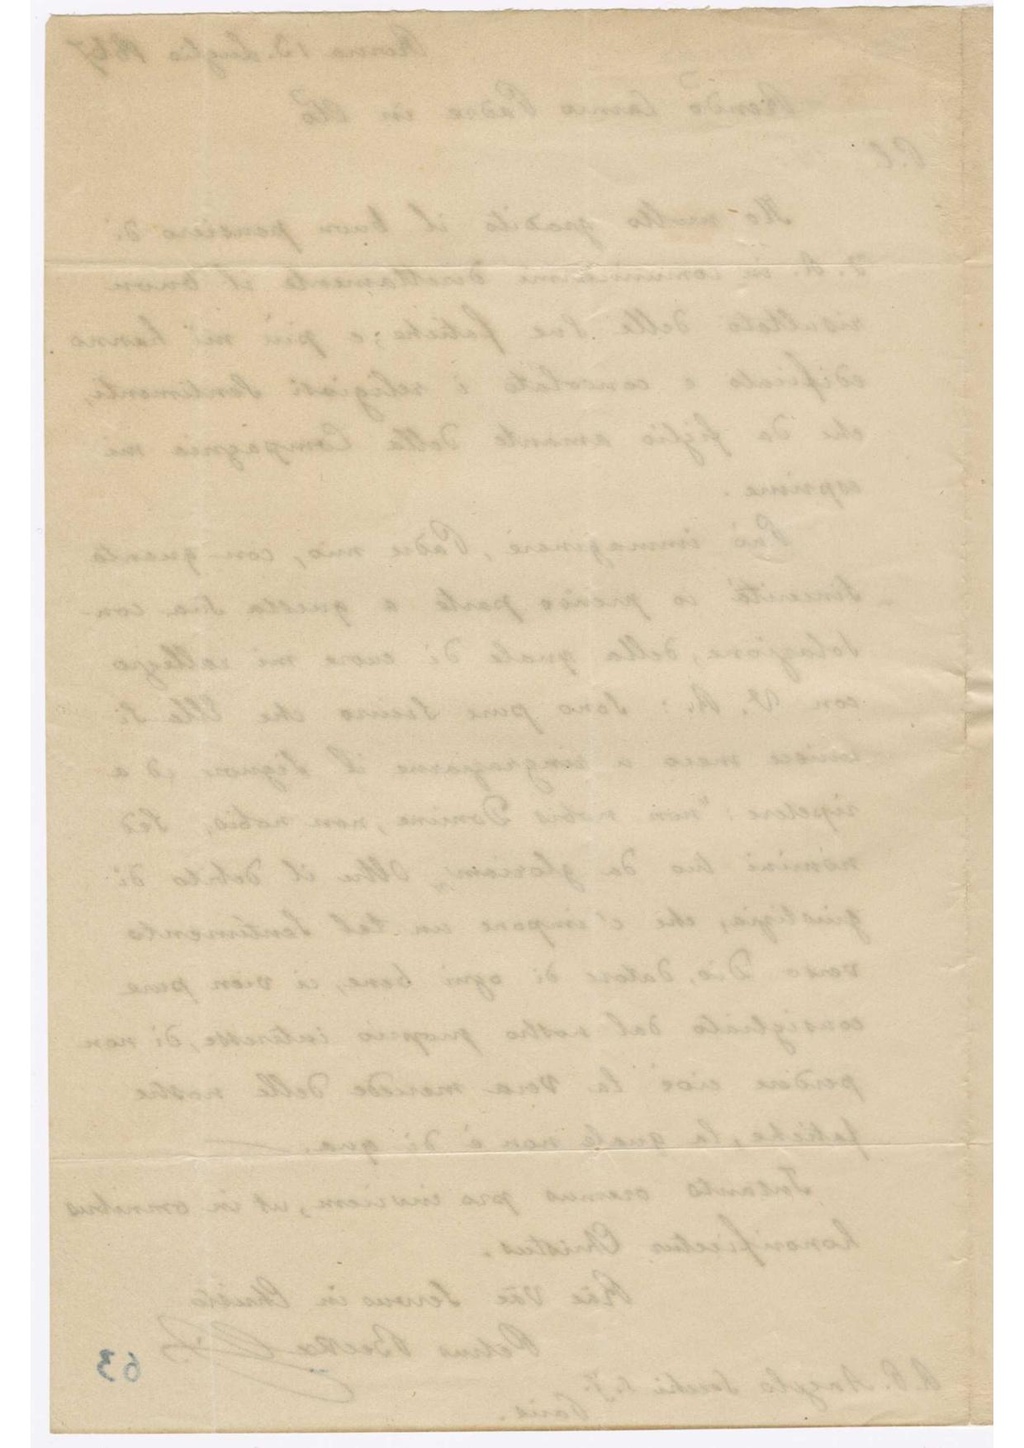 Roma 13. Luglio 1867
Rendo Carmo Padre in Xto
P. C.
Ho molto gradito il buon pensiero di
V. R. in comunicarmi direttamente il buon
risultato delle Sue fatiche; e più mi hanno
edificato e consolato i religiosi sentimenti,
che da figlio amante della Compagnia mi
esprime.
Può immaginare, Padre mio, con quanta
sincerità io prenso parte a questa Sua con-
solazione, della quale di cuore mi rallegro
con V. R.: Sono pure sicuro che Ella si
unisce meco a ringraziarne il Signore ed a
ripetere: "non nobis Domine, non nobis, sed
nomini tuo da gloriam". Oltre il debito di
giustizia, che c'impone un tal sentimento
verso Dio, datore di ogni bene, ci vien pure
consigliato dal nostro proprio interesse, di non
perdere cioè la vera mercede delle nostre
fatiche, la quale non è di qua.
Intanto oremus pro invicem, ut in omnibus
honorificetur Christus.
Rae Vae Servus in Christo
Petrus Beckx
63
R. P. Angelo Secchi S. J.
Paris.